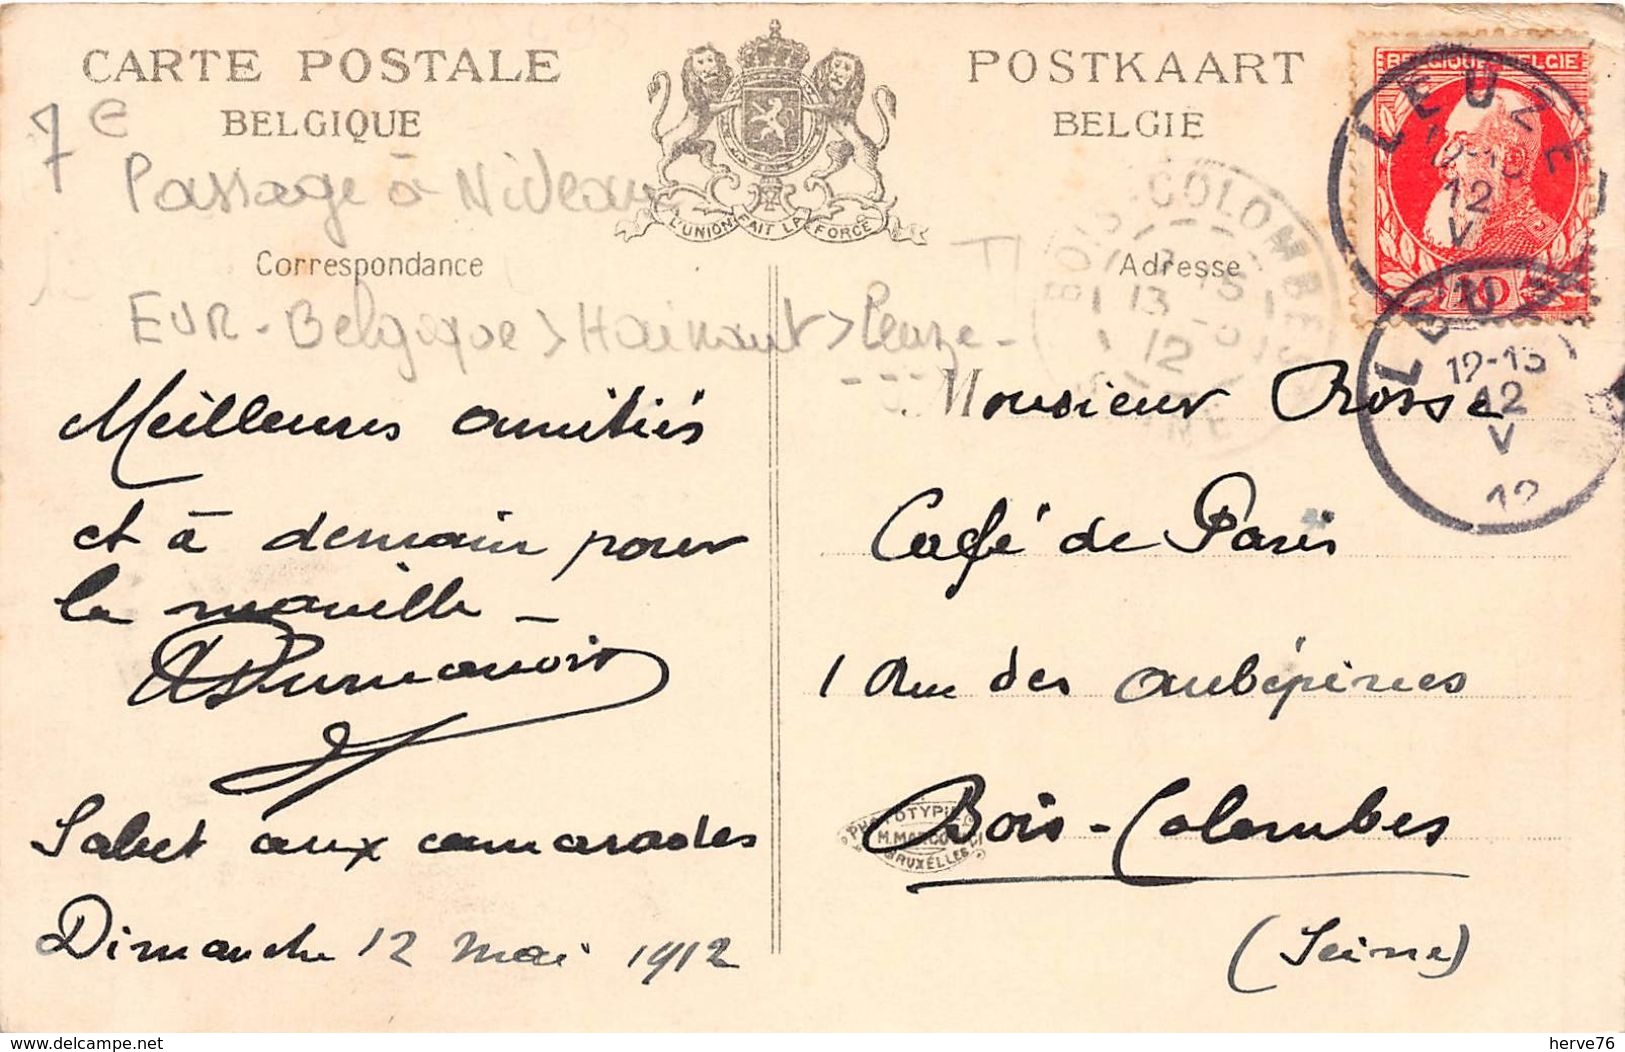 CARTE POSTALE
BELGIQUE
POSTKAART
BELGIE
L'UNION FAIT LA FORCE
7e
Passage à Niveau
Correspondance
Adresse
EUR - Belgique > Hainaut > Leuze -
BELGIQUE BELGIE
10
LEUZE
12
V
LEUZE
12-13
12
V
12
BOIS-COLOMBES
13 - 5
12
SEINE
Meilleures amitiés
et à demain pour
la manille -
Salut aux camarades
Dimanche 12 mai 1912
Monsieur Rosse
Café de Paris
1 Rue des Aubépines
Bois-Colombes
(Seine)
PHOTOTYPIE
M. MARCOVICI
BRUXELLES
herve76